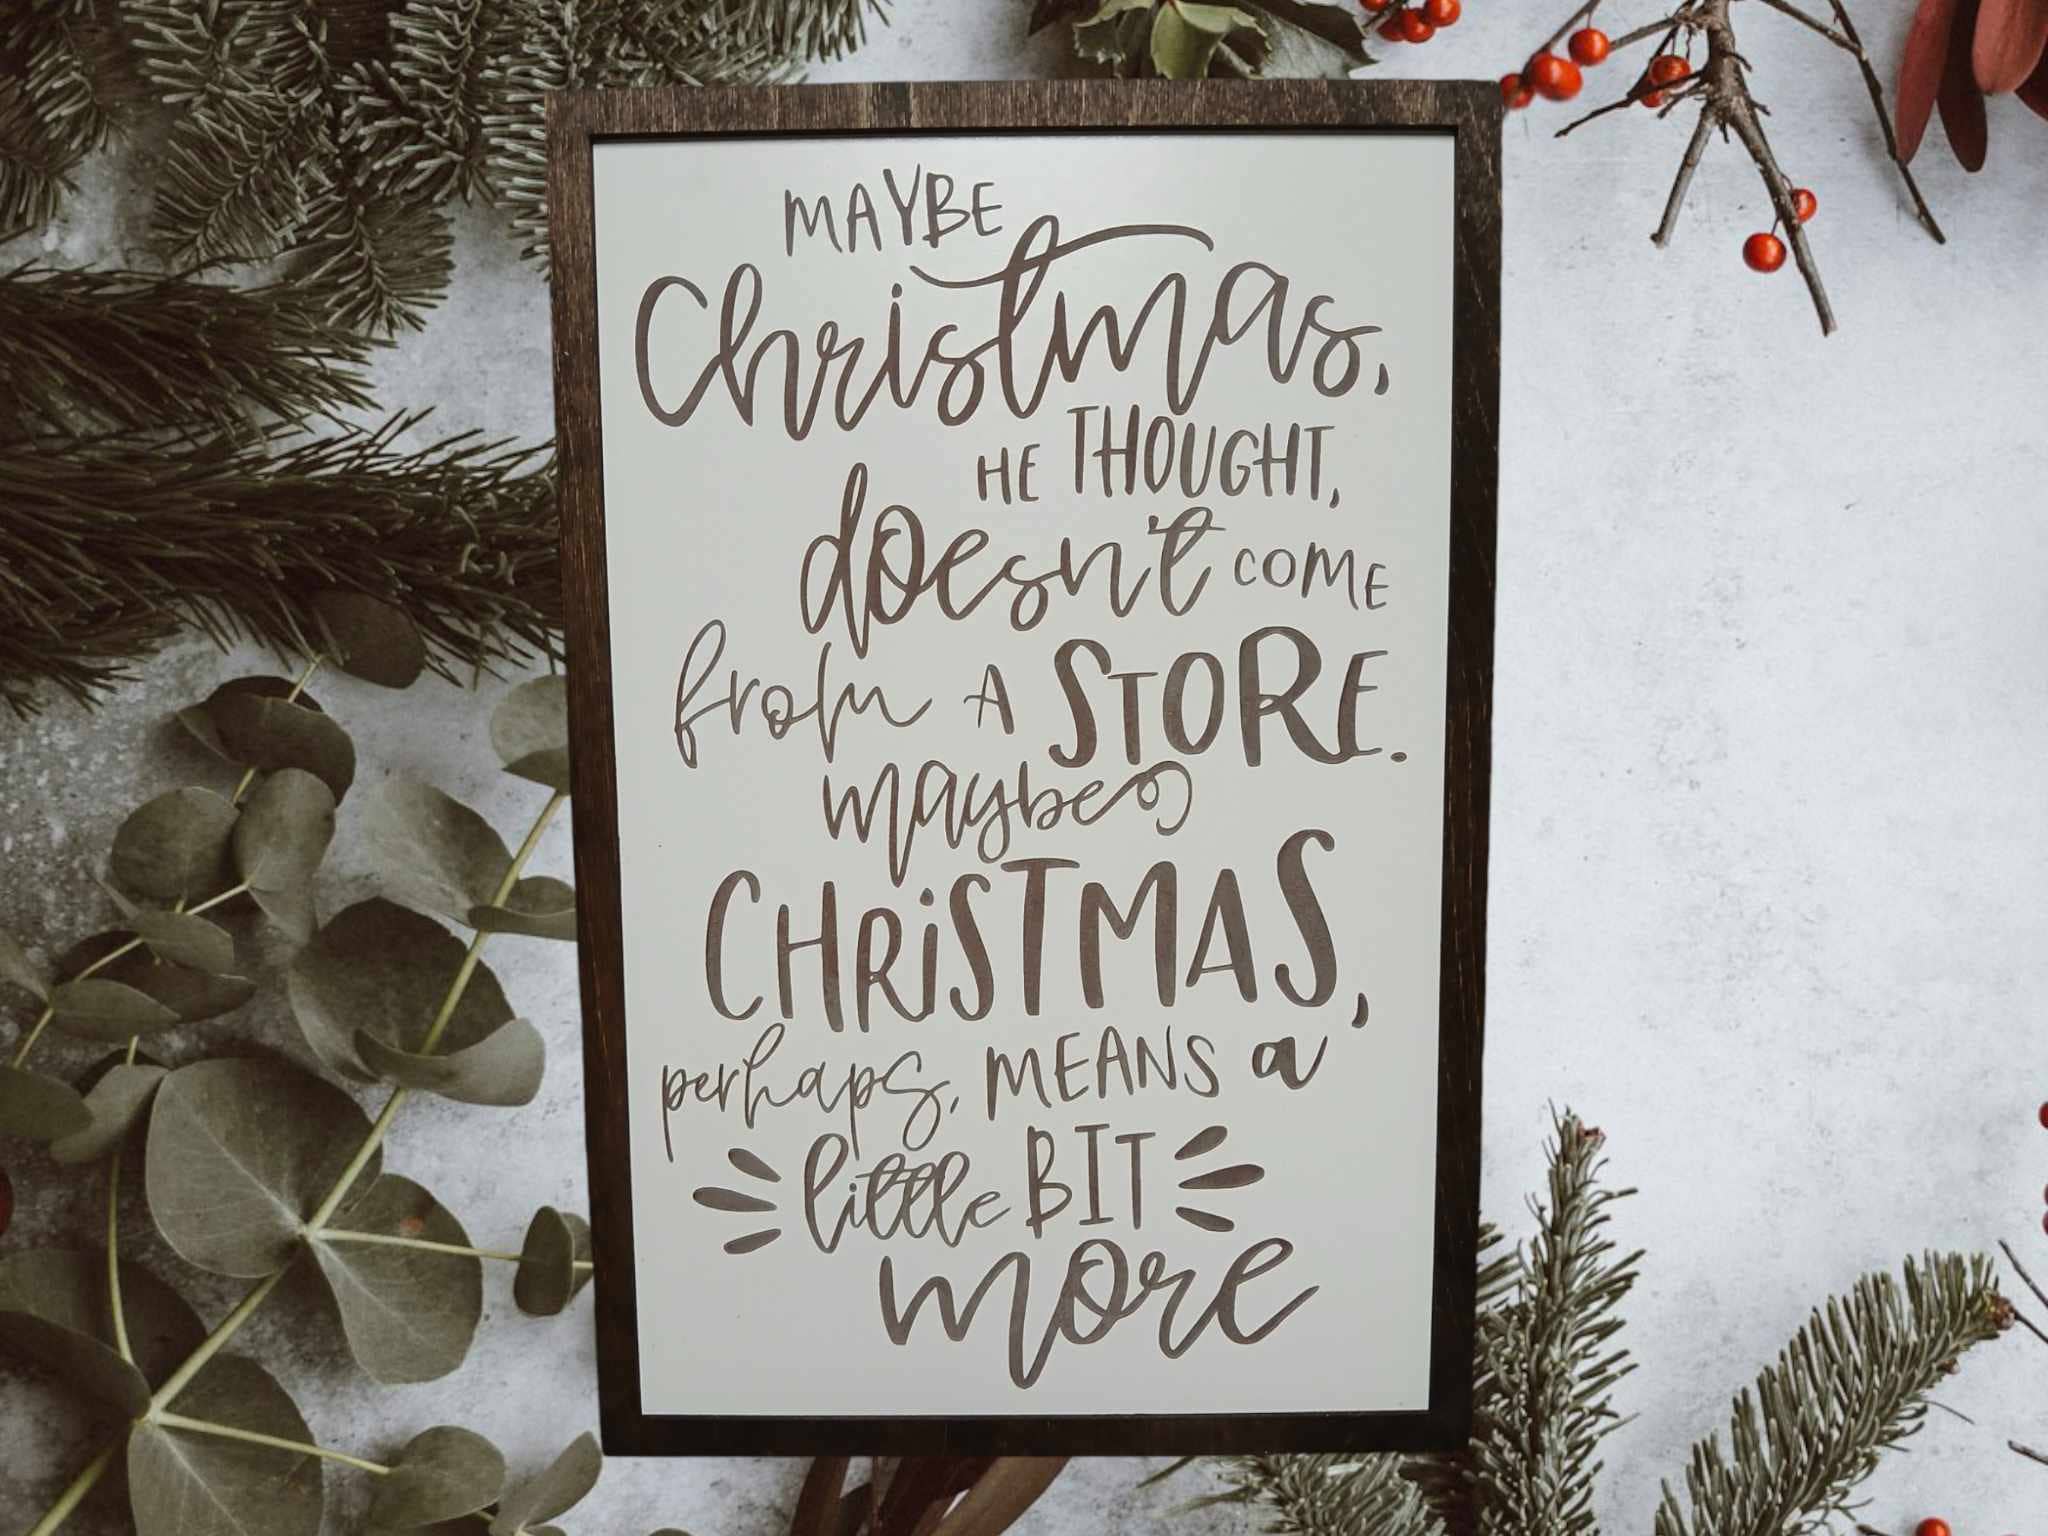 MAYBE
Christmas,
HE THOUGHT,
doesn't COME
from A STORE.
maybe
CHRiSTMAS,
perhaps, MEANS a
little BIT
more